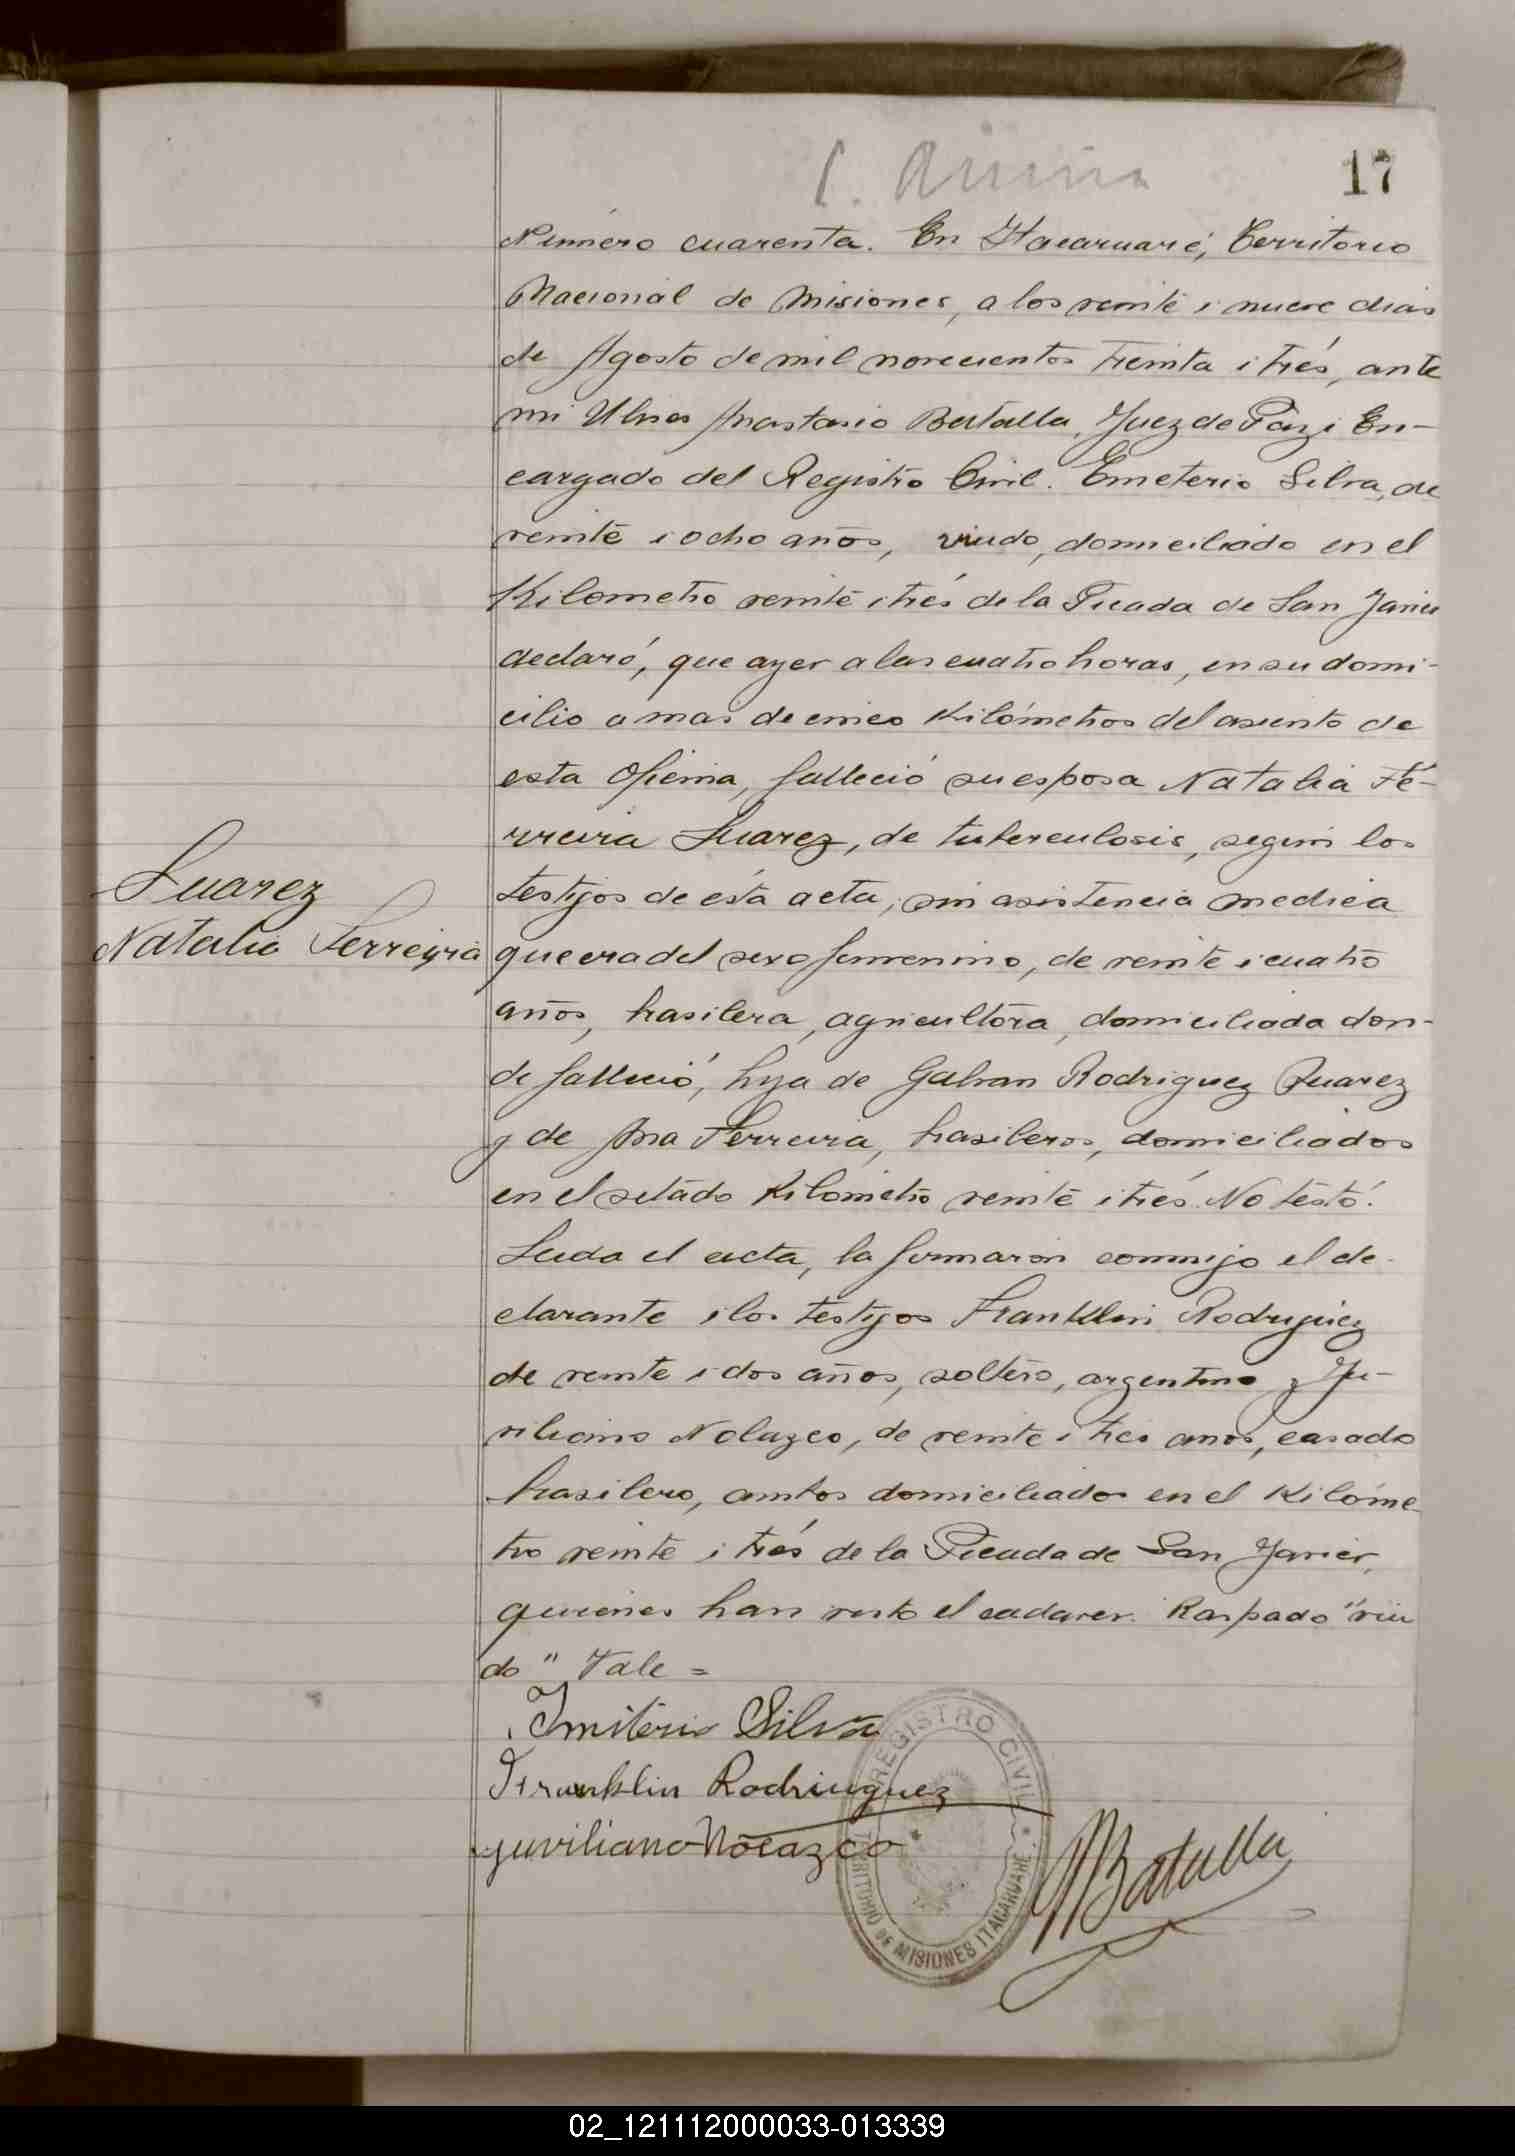 17
Número cuarenta. En Itacaruaré, Territorio
Nacional de Misiones, a los veinte i nueve dias
de Agosto de mil novecientos treinta i trés, ante
mi Ulises Anastasio Batalla, Juez de Paz i En-
cargado del Registro Civil. Emeterio Silva, de
veinte i ocho años, viudo, domiciliado en el
Kilometro veinte i trés de la Picada de San Javier
declaró, que ayer a las cuatro horas, en su domi-
cilio a mas de cinco Kilómetros del asiento de
esta Oficina, falleció su esposa Natalia Fe-
rreira Suarez, de tuberculosis, segun los
testigos de esta acta, sin asistencia medica
que era del sexo femenino, de veinte i cuatro
años, brasilera, agricultora, domiciliada don-
de falleció, hija de Galvan Rodriguez Suarez
y de Ana Ferreira, brasileros, domiciliados
en el setado Kilometro veinte i trés. No testó.
Leida el acta, la firmaron conmigo el de-
clarante i los testigos Franklin Rodriguez
de veinte i dos años, soltero, argentino y Ju-
viliano Nolazco, de veinte i tres años, casado
brasilero, ambos domiciliados en el Kilóme
tro veinte i trés de la Picada de San Javier,
quienes han visto el cadaver. Raspado "viu
do" Vale =
Suarez
Natalia Ferreyra
Imiterio Silva
Franklin Rodriuguez
juviliano Nolazco
Batalla
REGISTRO CIVIL
TERRITORIO DE MISIONES ITACARUARÉ
02_121112000033-013339